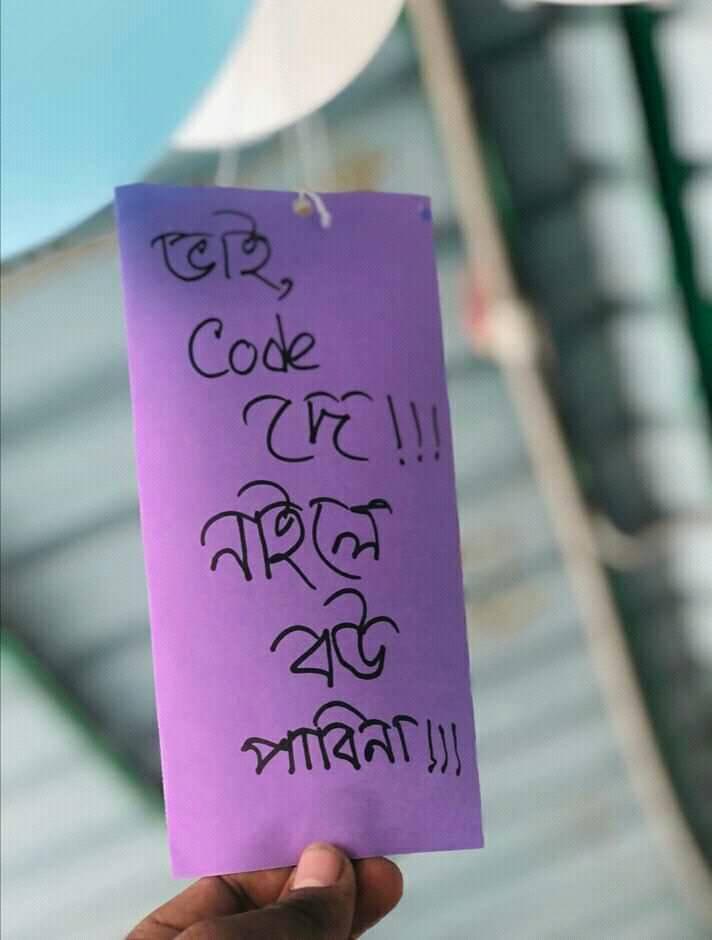 ভাই,
Code
দে!!!
নাইলে
বউ
পাবিনা!!!